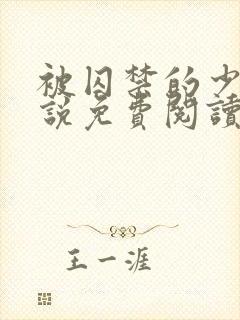 被囚禁的少
說免費閱讀
王一涯